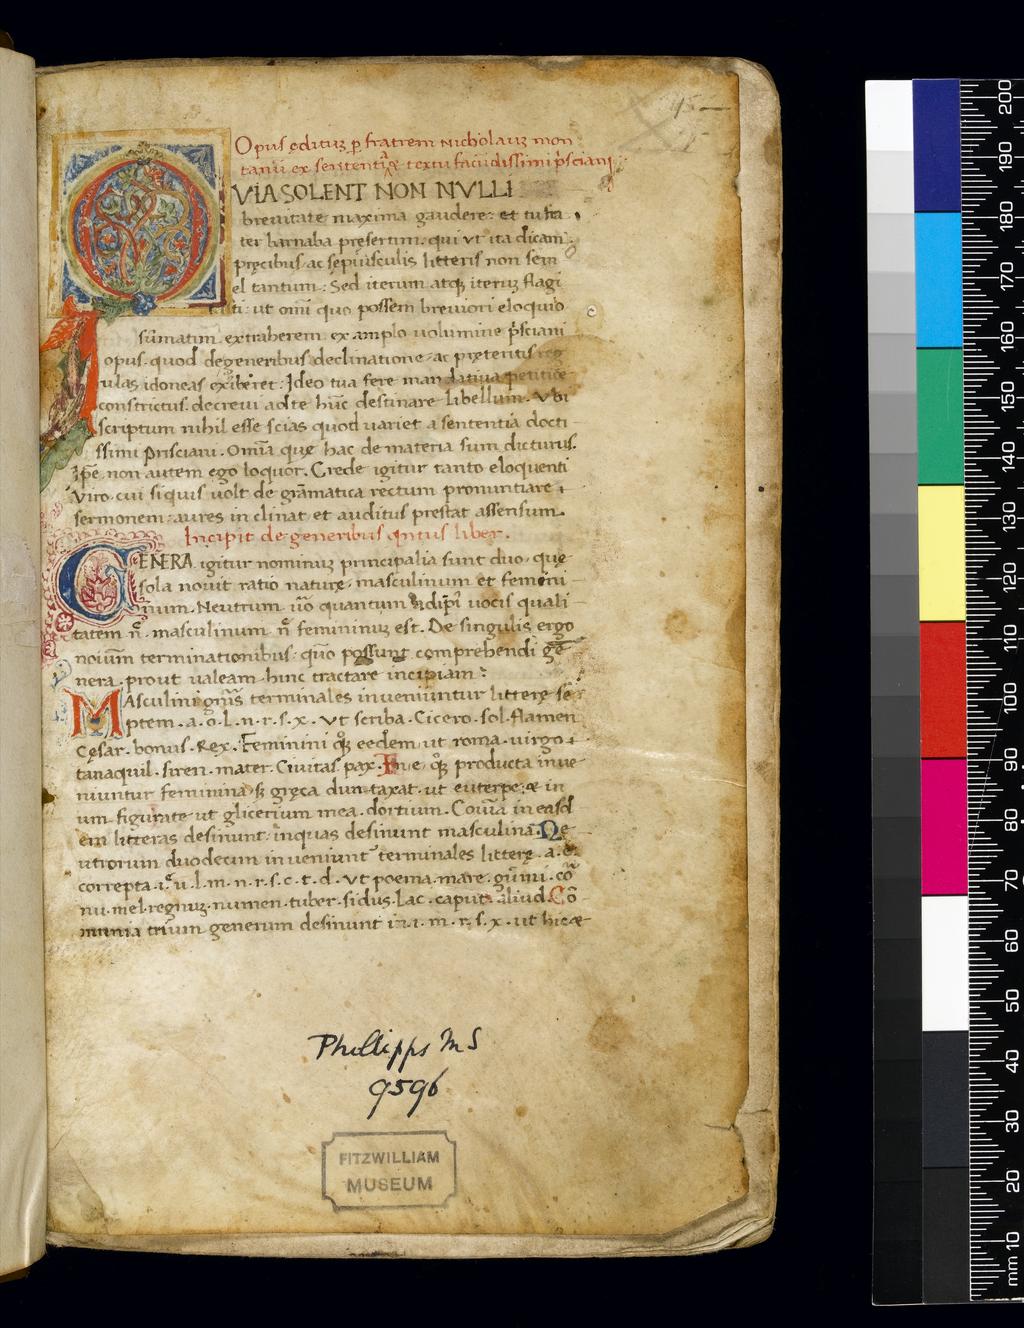 Opus edituʒ p fratrem Nicholauʒ mon
tanu ex sententia & textu facūdissimi p̄sciani
QVIA SOLENT NON NVLLI
breuitate maxima gaudere: et tu fra
ter barnaba presertim. qui vt ita dicam
pręcibus ac sepiusculis litteris non sem
el tantum: Sed iterum atqʒ iteruʒ flagi
ti: ut omi quo possem breuiori eloquio
sumatim extraherem ex amplo uolumine p̄sciani
opus quod degeneribus declinatione ac pręteritis reg
ulas idoneas exiberet: Ideo tua fere man
constrictus decreui ad te hūc destinare libellum. Vbi
scriptum nihil esse scias quod uariet a sententia docti
ssimi prisciani. Omīa quę hac de materia sum dicturus.
ipse non autem ego loquor. Crede igitur tanto eloquenti
Viro. cui siquis uolt de grāmatica rectum pronuntiare
sermonem: aures inclinat et auditus prestat assensum.
Incipit de generibus qntus liber.
GENERA igitur nominuʒ principalia sunt duo. quę
sola nouit ratio naturę. masculinum et femini
num. Neutrum ūo quantum uocis quali
tatem n̄. masculinum n̄ femininuʒ est. De singulis ergo
noium terminationibus: quo possunt comprehendi ge
nera. prout ualeam. hinc tractare incipiam:
MAsculini gn̄is terminales inueniuntur litterę se
ptem. a. o. L. n. r. s. x. Vt scriba. Cicero. sol. flamen
Cęsar. bonus. Rex. Feminini qʒ eedem ut roma. uirgo.
tanaquil. siren. mater. Ciuitas pax. In e. qʒ producta inue
niuntur feminina sʒ gręca dun taxat. ut euterpe: & in
um. figurate ut glicerium mea. dortium. Coīa in easd
em litteras desinunt: inquas desinunt masculina. Ne
utrorum duodecim inueniunt terminales litterę. a. e.
correpta. i. u. l. m. n. r. s. c. t. d. Vt poema. mare. gūmi. co
nu. mel. regnuʒ. numen. tuber. sidus. Lac. caput. aliud. Co
munia trium generum desinunt in. i. m. r. s. x. ut hic &
Phillipps MS
9596
FITZWILLIAM
MUSEUM
200
190
180
170
160
150
140
130
120
110
100
90
80
70
60
50
40
30
20
mm 10